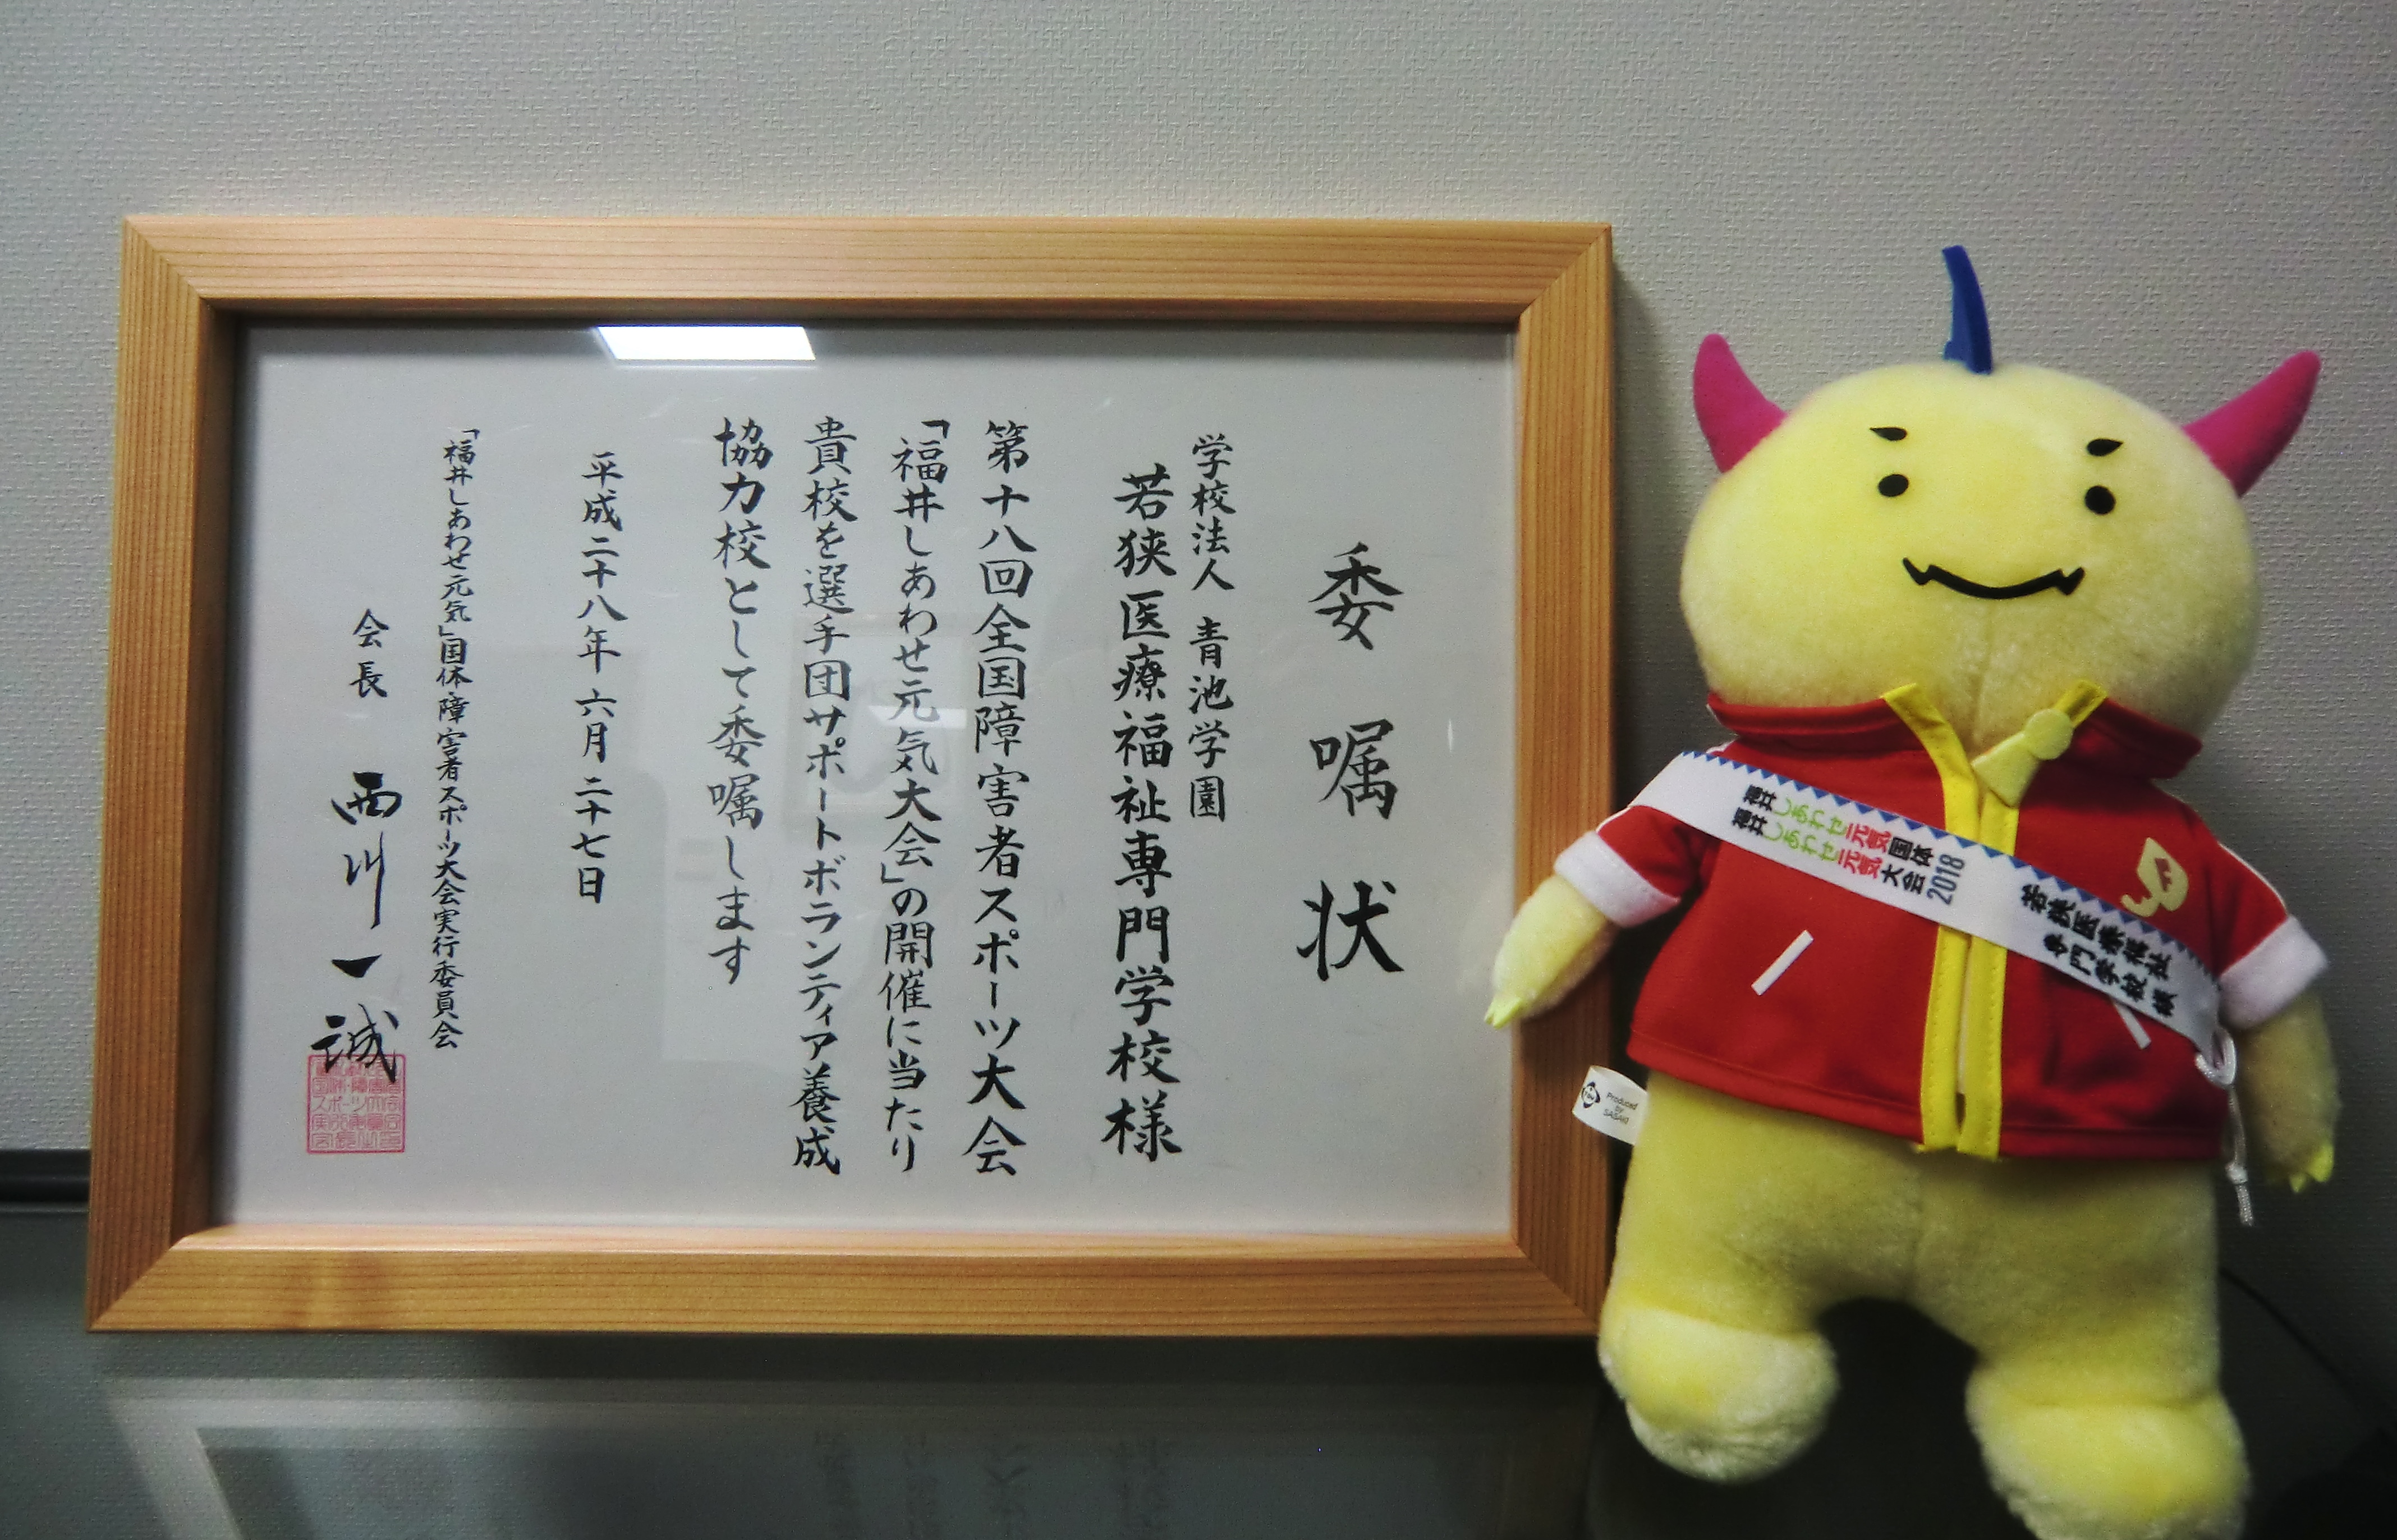 委嘱状
学校法人 青池学園
若狭医療福祉専門学校様
第十八回全国障害者スポーツ大会
「福井しあわせ元気大会」の開催に当たり
貴校を選手団サポートボランティア養成
協力校として委嘱します
平成二十八年 六月 二十七日
「福井しあわせ元気」国体・障害者スポーツ大会実行委員会
会長 西川一誠
福井しあわせ元気国体
福井しあわせ元気大会 2018
若狭医療福祉
専門学校様
Produced
by
SASAKI